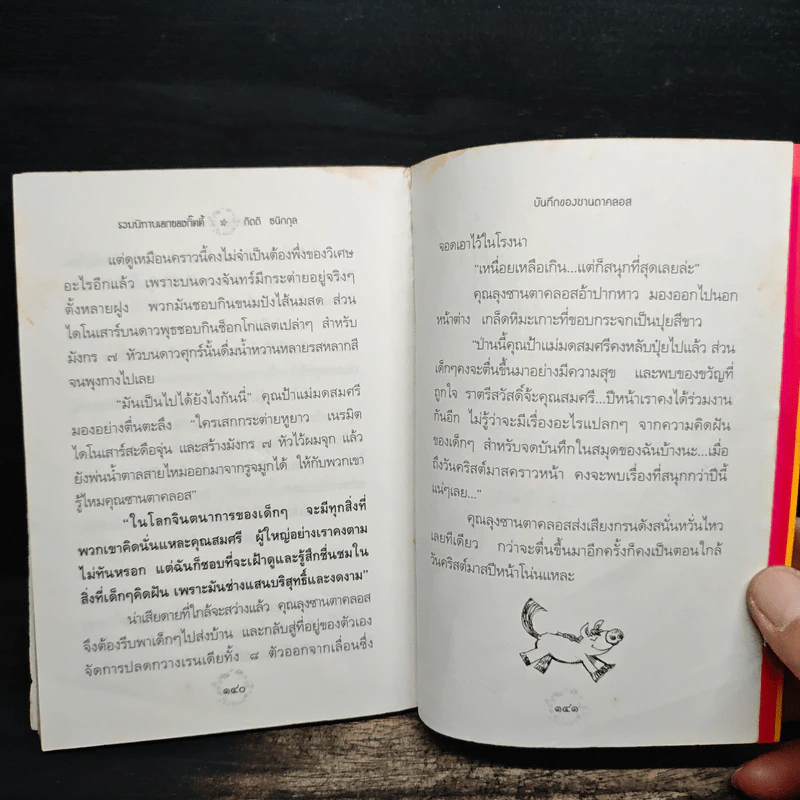 รวมนิทานเอกของกิ๊ดดี้ ✶ กิตติ ธนิกกุล
แต่ดูเหมือนคราวนี้คงไม่จำเป็นต้องพึ่งของวิเศษ
อะไรอีกแล้ว เพราะบนดวงจันทร์มีกระต่ายอยู่จริงๆ
ตั้งหลายฝูง พวกมันชอบกินขนมปังไส้นมสด ส่วน
ไดโนเสาร์บนดาวพุธชอบกินช็อกโกแลตเปล่าๆ สำหรับ
มังกร ๗ หัวบนดาวศุกร์นั้นดื่มน้ำหวานหลายรสหลากสี
จนพุงกางไปเลย
“มันเป็นไปได้ยังไงกันนี่” คุณป้าแม่มดสมศรี
มองอย่างตื่นตะลึง “ใครเสกกระต่ายหูยาว เนรมิต
ไดโนเสาร์สะดือจุ่น และสร้างมังกร ๗ หัวไว้ผมจุก แล้ว
ยังพ่นน้ำตาลสายไหมออกมาจากรูจมูกได้ ให้กับพวกเขา
รู้ไหมคุณซานตาคลอส”
“ในโลกจินตนาการของเด็กๆ จะมีทุกสิ่งที่
พวกเขาคิดนั่นแหละคุณสมศรี ผู้ใหญ่อย่างเราคงตาม
ไม่ทันหรอก แต่ฉันก็ชอบที่จะเฝ้าดูและรู้สึกชื่นชมใน
สิ่งที่เด็กๆคิดฝัน เพราะมันช่างแสนบริสุทธิ์และงดงาม”
น่าเสียดายที่ใกล้จะสว่างแล้ว คุณลุงซานตาคลอส
จึงต้องรีบพาเด็กๆไปส่งบ้าน และกลับสู่ที่อยู่ของตัวเอง
จัดการปลดกวางเรนเดียทั้ง ๘ ตัวออกจากเลื่อนซึ่ง
๑๔๐
บันทึกของซานตาคลอส
จอดเอาไว้ในโรงนา
“เหนื่อยเหลือเกิน...แต่ก็สนุกที่สุดเลยล่ะ”
คุณลุงซานตาคลอสอ้าปากหาว มองออกไปนอก
หน้าต่าง เกล็ดหิมะเกาะที่ขอบกระจกเป็นปุยสีขาว
“ป่านนี้คุณป้าแม่มดสมศรีคงหลับปุ๋ยไปแล้ว ส่วน
เด็กๆคงจะตื่นขึ้นมาอย่างมีความสุข และพบของขวัญที่
ถูกใจ ราตรีสวัสดิ์จ้ะคุณสมศรี...ปีหน้าเราคงได้ร่วมงาน
กันอีก ไม่รู้ว่าจะมีเรื่องอะไรแปลกๆ จากความคิดฝัน
ของเด็กๆ สำหรับจดบันทึกในสมุดของฉันบ้างนะ...เมื่อ
ถึงวันคริสต์มาสคราวหน้า คงจะพบเรื่องที่สนุกกว่าปีนี้
แน่ๆเลย...”
คุณลุงซานตาคลอสส่งเสียงกรนดังสนั่นหวั่นไหว
เลยทีเดียว กว่าจะตื่นขึ้นมาอีกครั้งก็คงเป็นตอนใกล้
วันคริสต์มาสปีหน้าโน่นแหละ
๑๔๑